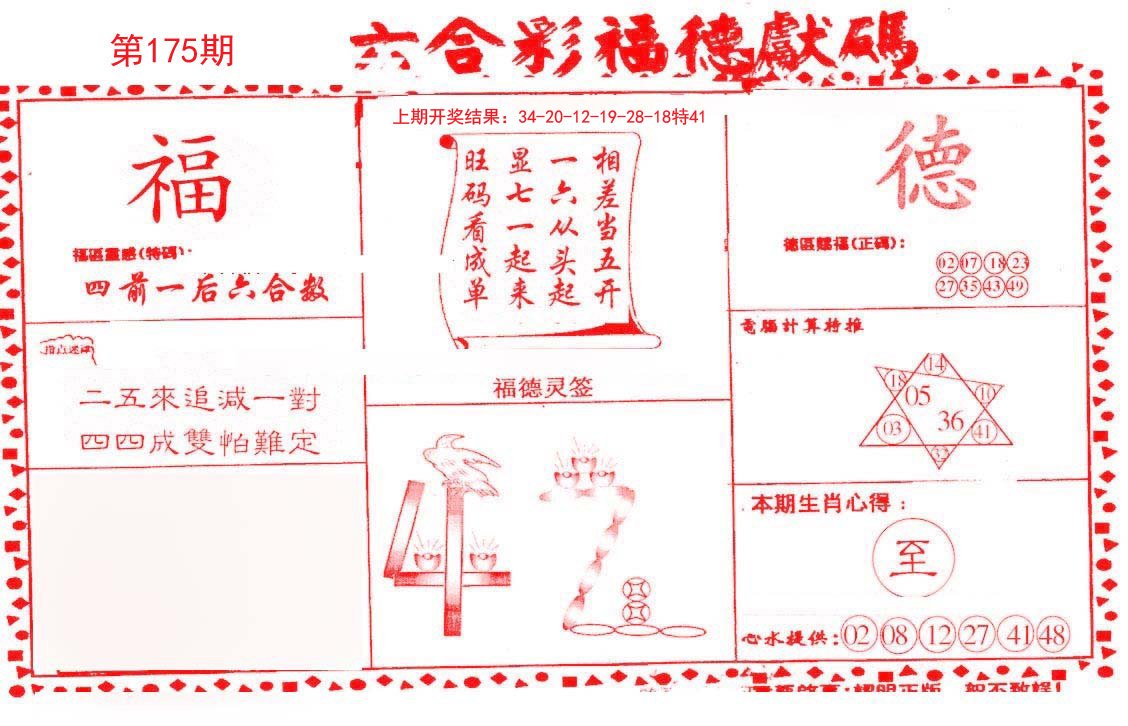 第175期
六合彩福德獻碼
上期开奖结果：34-20-12-19-28-18特41
福
福區靈感(特碼)：
四前一后六合数
指点迷津
二五來追減一對
四四成雙怕難定
相差当五开
一六从头起
显七一起来
旺码看成单
福德灵签
42
德
德區賜福(正碼)：
02 07 18 23
27 35 43 49
電腦計算特推
14
18 05 10
03 36 41
32
本期生肖心得：
至
心水提供：02 08 12 27 41 48